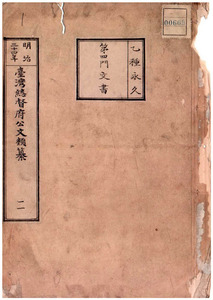 00665
乙種永久
第四門文書
明治
三十四年
臺灣總督府公文類纂
一一